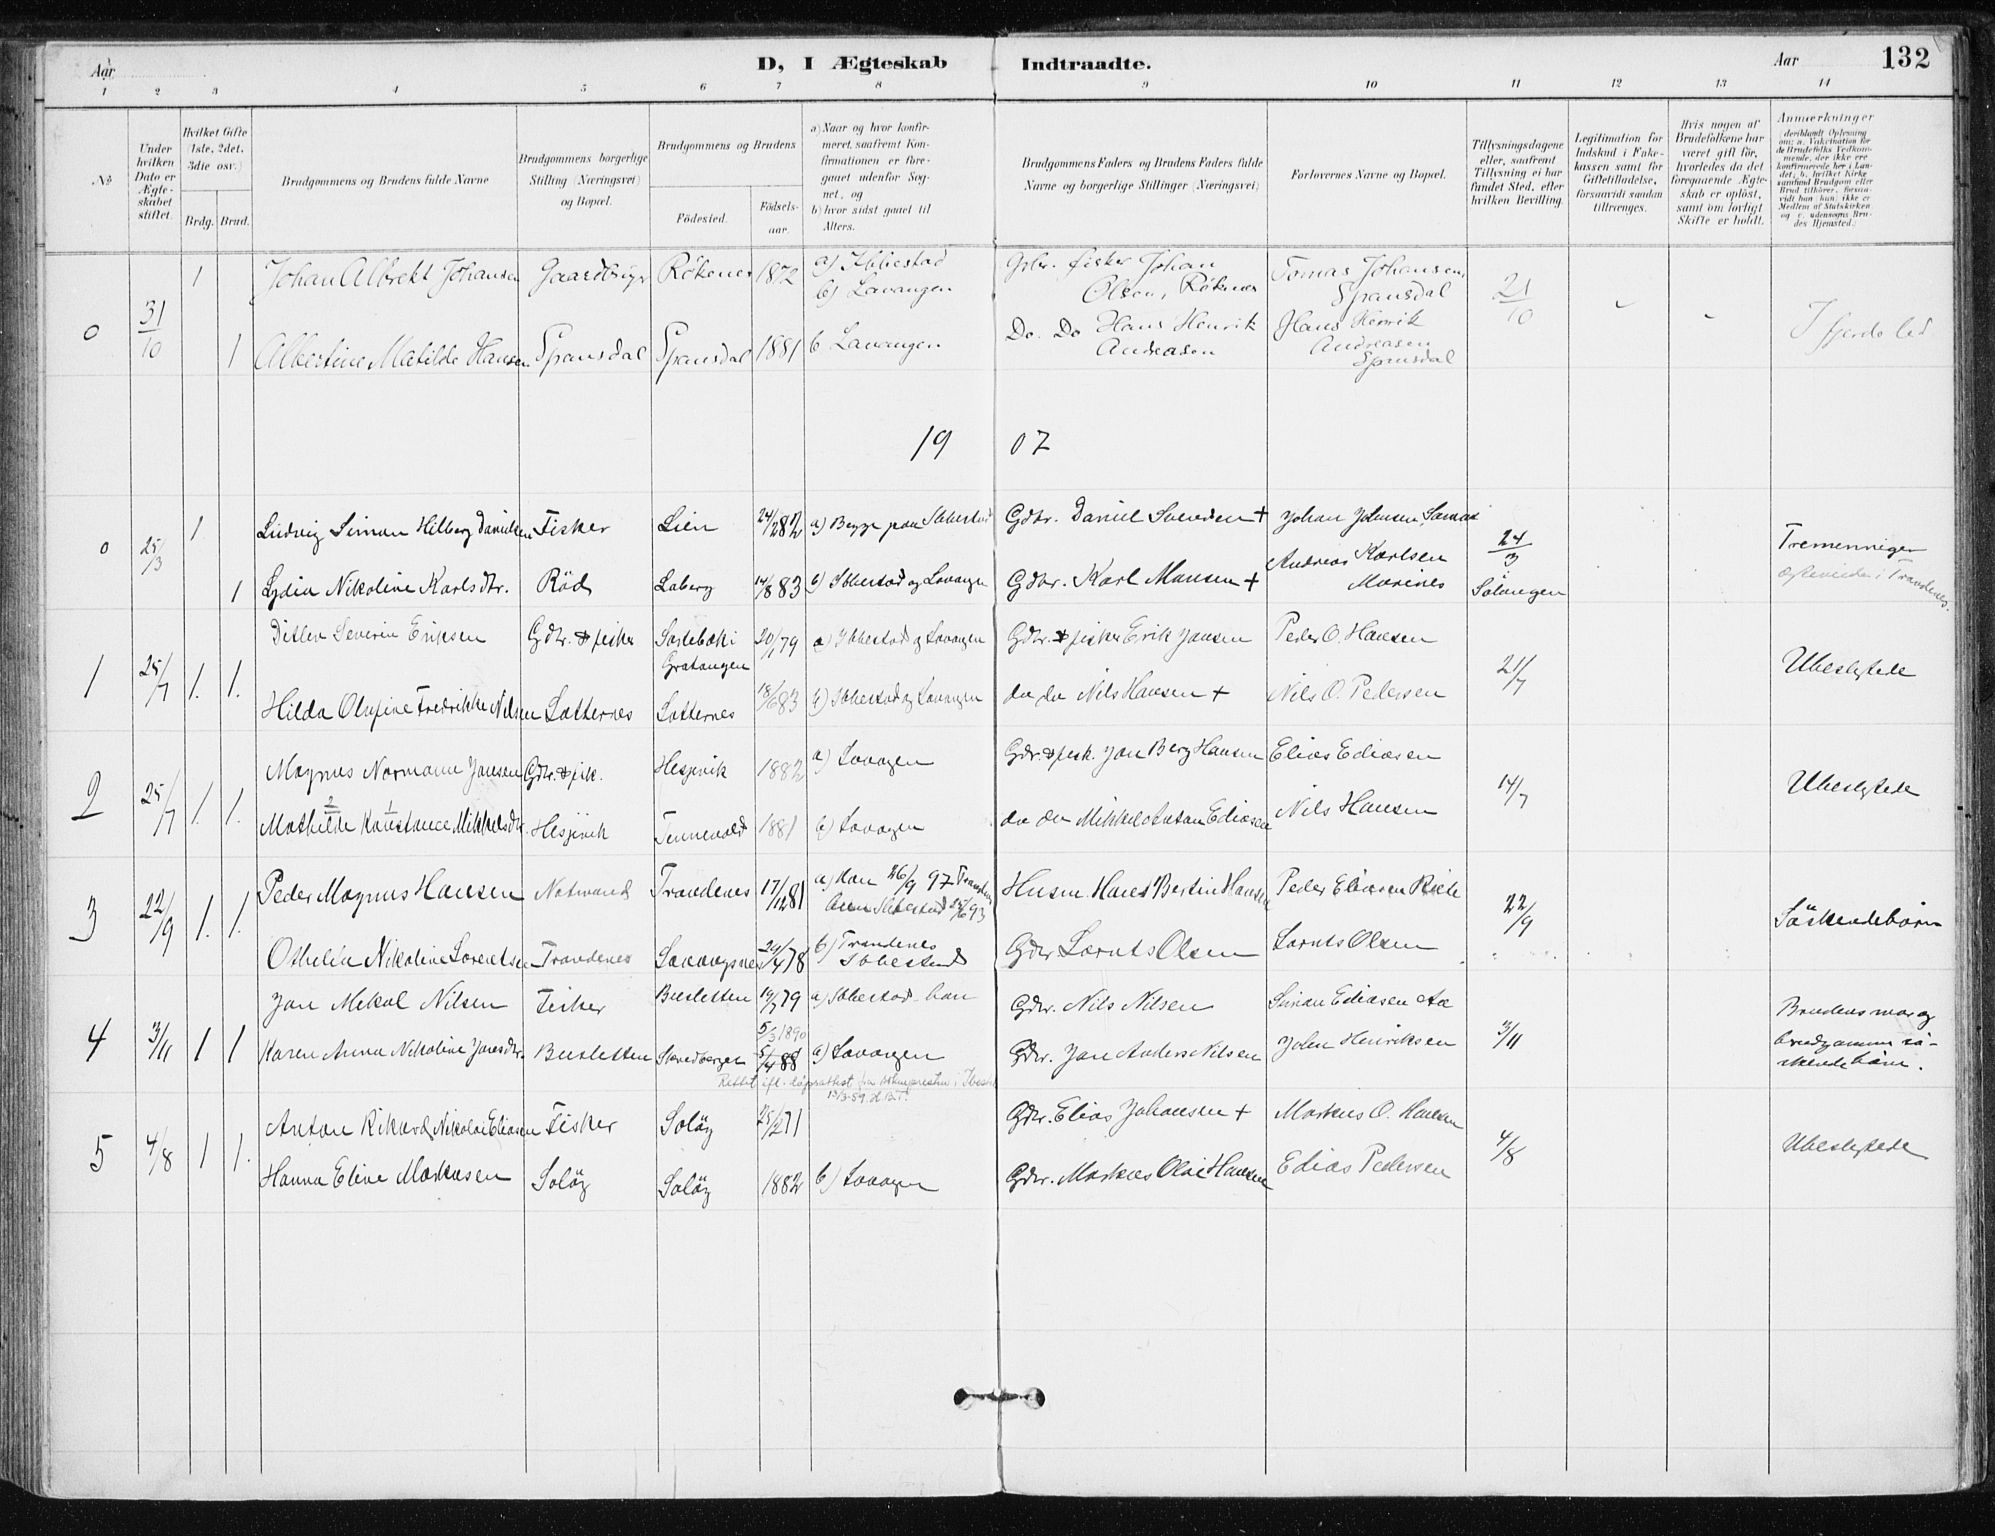 Aar
D, I Ægteskab Indtraadte.
Aar
132
1 2 3 4 5 6 7 8 9 10 11 12 13 14
No
Under hvilken Dato er Ægteskabet stiftet.
Hvilket Gifte (1ste, 2det, 3die osv.)
Brdg. Brud.
Brudgommens og Brudens fulde Navne
Brudgommens borgerlige Stilling (Næringsvei) og Bopæl.
Brudgommens og Brudens
Födested.
Födsels-aar.
a) Naar og hvor konfirmeret, saafremt Konfirmationen er foregaaet udenfor Sognet, og
b) hvor sidst gaaet til Alters.
Brudgommens Faders og Brudens Faders fulde Navne og borgerlige Stillinger (Næringsvei)
Forlovernes Navne og Bopæl.
Tillysningsdagene eller, saafremt Tillysning ei har fundet Sted, efter hvilken Bevilling.
Legitimation for Indskud i Enkekassen samt for Giftetilladelse, forsaavidt saadan tiltrænges.
Hvis nogen af Brudefolkene har været gift för, hvorledes da det foregaaende Ægteskab er oplöst, samt om lovligt Skifte er holdt.
Anmærkninger
0 31/10 1 Johan Albrekt Johansen Gaardbruger Rökenes 1872 a) Ibbestad b) Lavangen Gbr. fisker Johan Olsen, Röknes Tomas Johansen, Spansdal 21/10 I fjerde led
1 Albertine Matilde Hansen Spansdal Spansdal 1881 b Lavangen Do. Do Hans Henrik Andreasen Hans Henrik Andreasen Spansdal
1907
0 25/3 1 Ludvig Simon Hilberg Danielsen Fisker Lien 24/2 82 a) Begge paa Ibbestad Gdbr. Daniel + Johan Johnsen 24/3 Tremenninger
1 Lydia Nikoline Karlsdtr. Röd Laberg 14/8 83 b) Ibbestad og Lavangen Gdbr. Karl Monsen + Andreas Karlsen Sölvngen
1 25/7 1. 1. Ditlev Severin Eriksen Gdbr. & fisker Gratangen 20/1 79 a) Ibbestad og Lavangen Gdbr. & fisker Erik Jansen Peder O. Hansen 21/7 Ubeslegtede
Hilda Olufine Fredrikke Nilsen Sotternes Sotternes 18/6 83 b) Ibbestad og Lavangen do do Nils Hansen + Nils O. Pedersen
2 25/7 1. 1. Magnus Normann Jansen Gdbr. & fik. Hesjevik 1882 a) Lavagen Gdbr. & fisk. Jan Berg Hansen Elias Ediasen 14/7 Ubeslegtede
Mathilde Konstance Mikkelsdtr. Hesjevik Tennevold 1881 b) Lavagen do do Mikkel Ediasen Nils Hansen
3 22/9 1. 1. Peder Magnus Hansen Notmand Trondenes 17/12 81 a) Han 26/9 97 Husm. Hans Bertin Hansen Peder Eliasen 22/9 Söskendebörn
Othelie Nikoline Lorentsen Trondenes 29/4 78 b) Trondenes Ibbestad Gdbr. Lornts Olsen Lornts Olsen
4 3/11 1 1 Jon Mikal Nilsen Fisker Buesletten 19/7 79 a) Ibbestad han Gdbr. Nils Nilsen Simon Ediasen Aa 3/11 Brudens mor og
5/3 1890
Karen Anna Nikoline Jonsdtr. Buesletten 5/4 88 a) Lavangen Gdbr. Jon Anders Nilsen John Henriksen brudgommen söskendebörn.
5 4/8 1 1. Anton Rikard Nikolai Eliasen Fisker Soløy 25/2 71 Gdbr. Elias Johansen + Markus O. Hansen 4/8 Ubeslegtede
Hanna Eline Markusen Soløy Soløy 1882 b) Lavagen Gdbr. Markus Olai Hansen Edias Pedersen